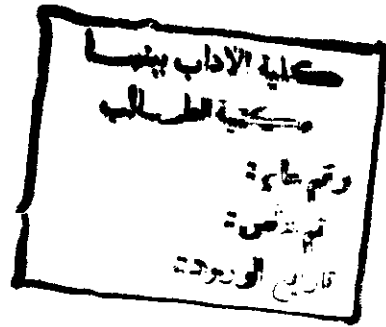 كلية الآداب ببنها
مكتبة الطالب
رقم عام:
رقم خاص:
تاريخ الورود: